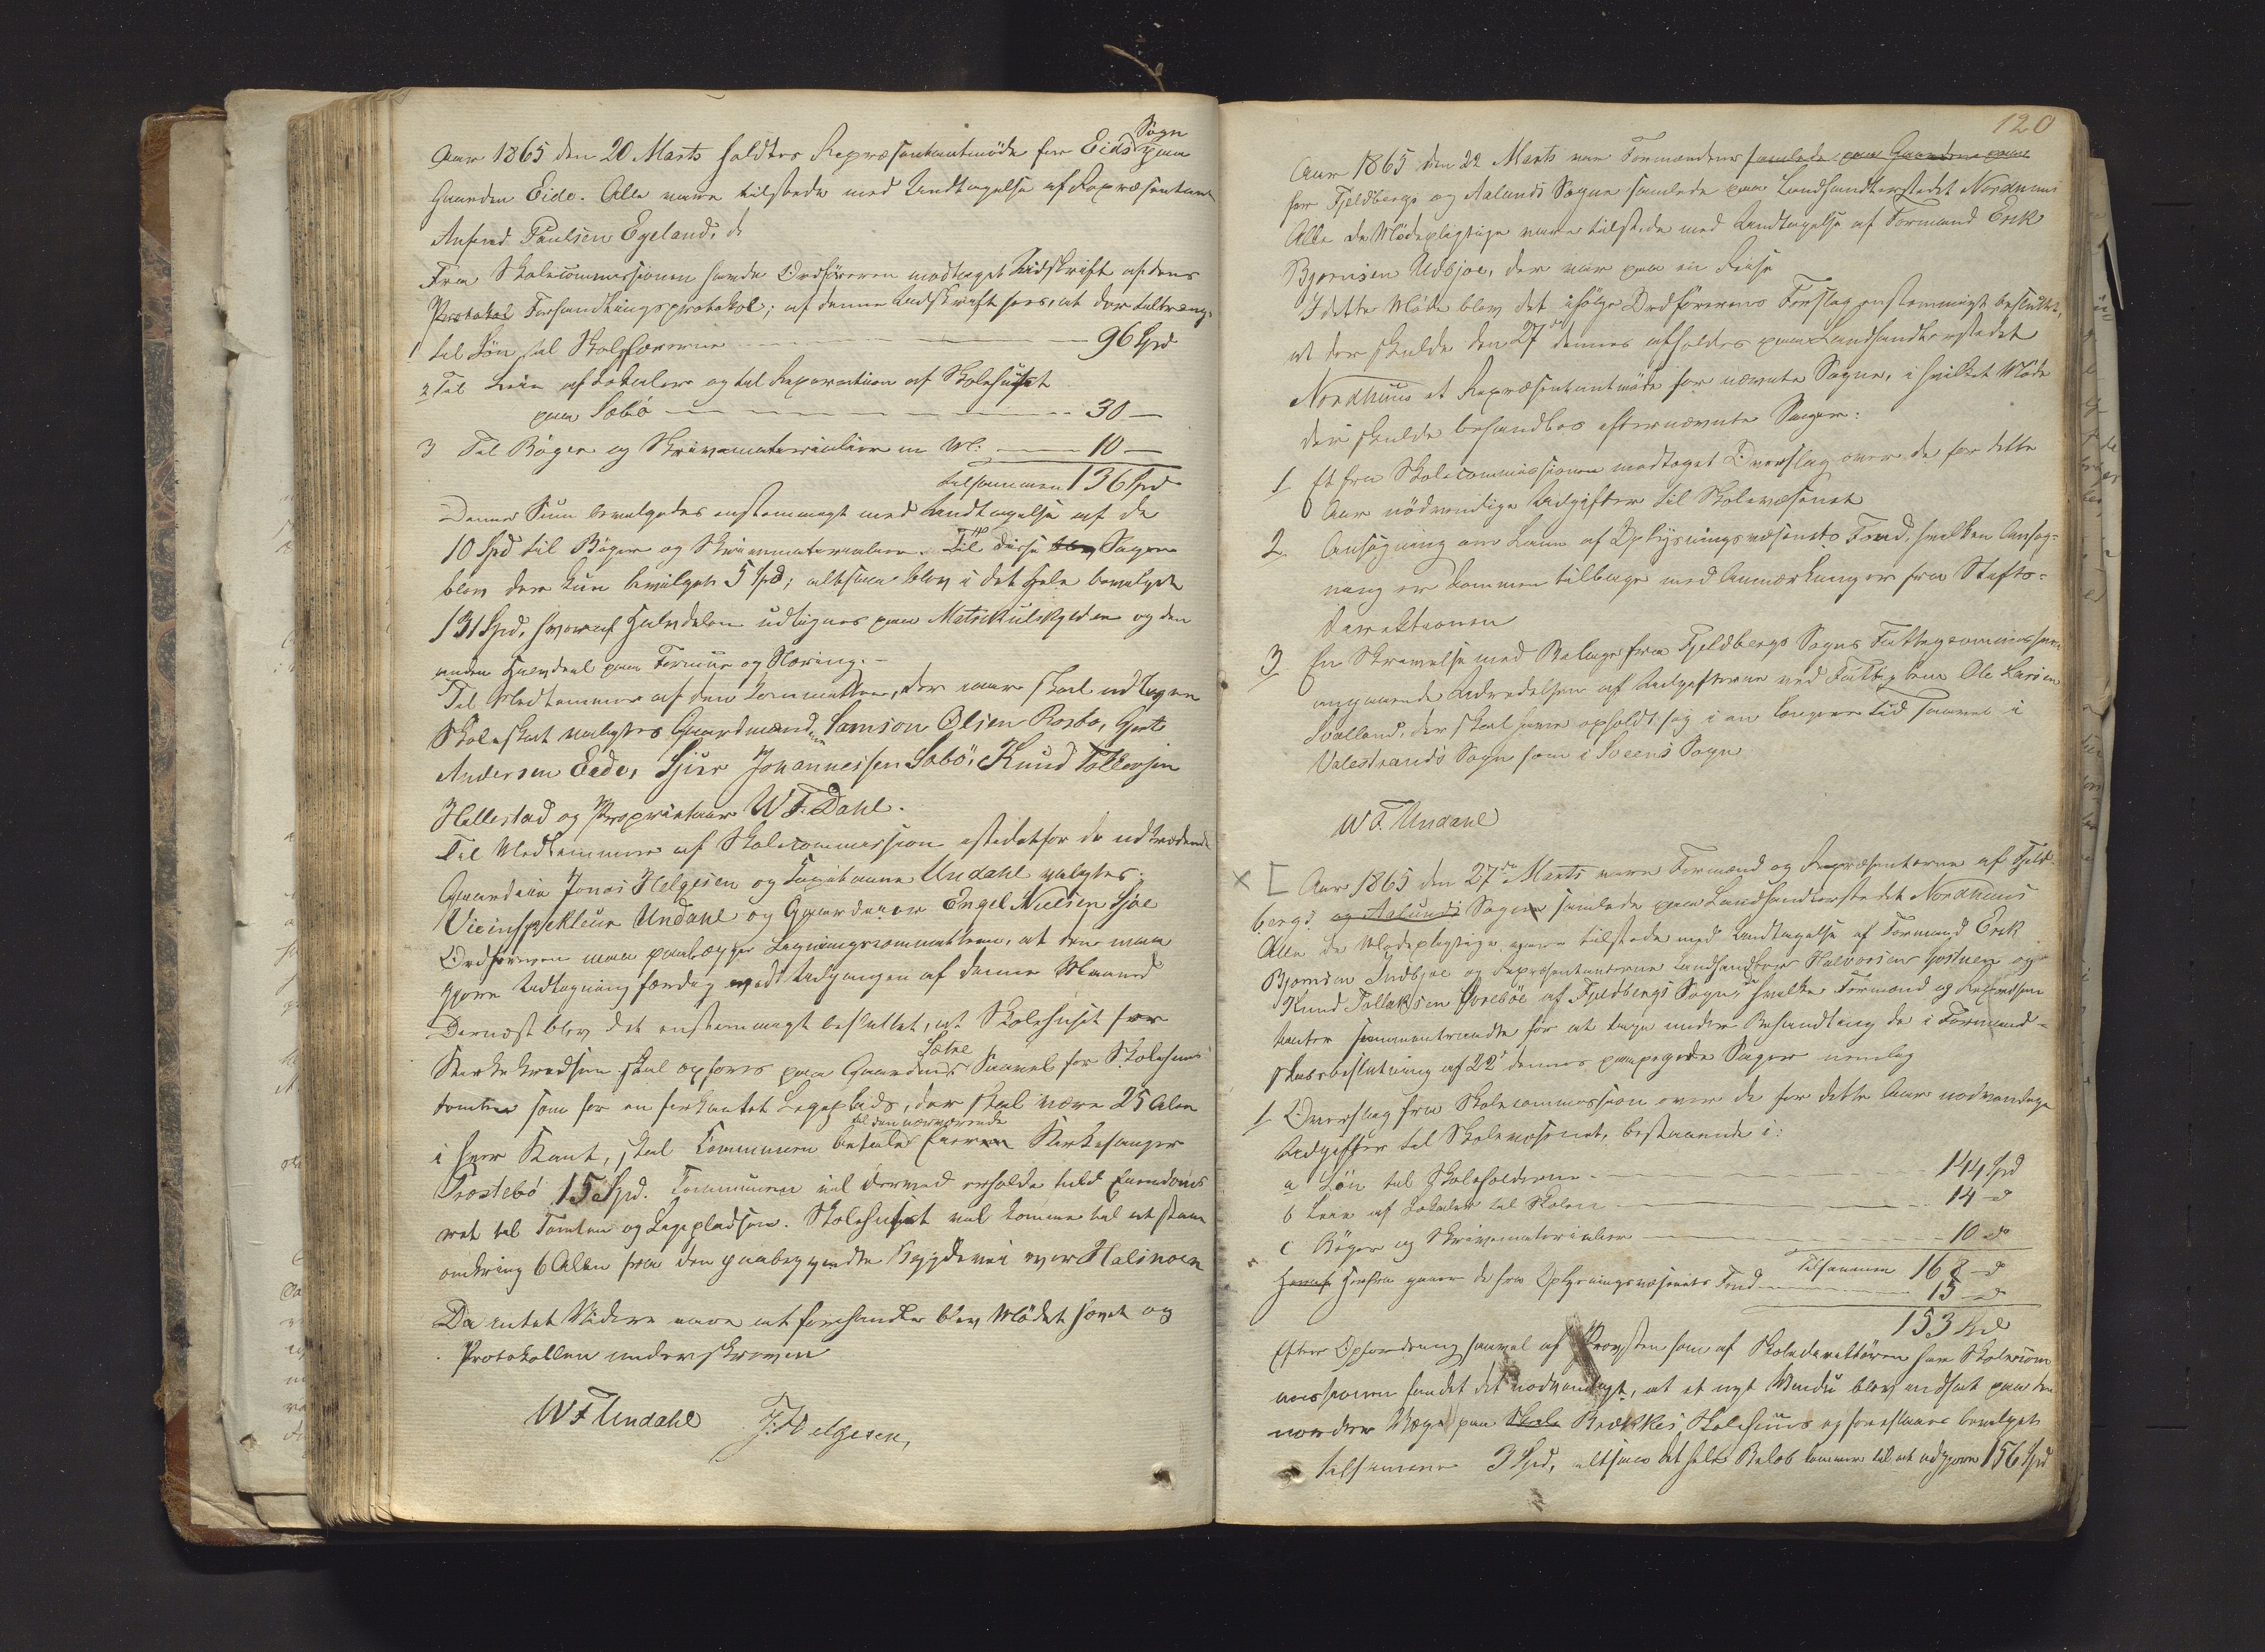 Aar 1865 den 20 Marts holdtes Repræsentantmöde for Eids Sogn paa
Gaarden Eide. Alle vare tilstede med Undtagelse af Repræsentant
Anfind Paulsen Egeland.
Fra Skolecommissionen havde Ordføreren modtaget Udskrift af dens
Protokol Forhandlingsprotokol; af denne Udskrift sees, at der tiltrænges
1 til Lön til Skolelærerne 96 Spd
2 Til Leie af Lokaler og til Reparation af Skolehuset
paa Sæbö 30 —
3 Til Böger og Skrivematerialier m M: 10 —
tilsammen 136 Spd
Denne Sum bevilgedes enstemmigt med Undtagelse af de
10 Spd til Böger og Skrivematerialier. Til disse blev Sager
blev der kun bevilget 5 Spd; altsaa blev i det Hele bevilget
131 Spd, hvoraf Halvdelen udlignes paa Matrikulskylden og den
anden Halvdeel paa Formue og Næring. –
Til Medlemmer af den Committee, der skal udligne
Skoleskat valgtes Gaardmændene Samson Olsen Rosbø, Gert
Andersen Eide, Sjur Johannessen Sæbö, Knud Tollevsen
Hellestad og Proprietair W F. Dahl.
Til Medlemmer af Skolecommission istedetfor de udtrædende
Gaardeier Jonas Helgesen og Undahl valgtes
Veiinspekteur Undahl og Gaardeier Engel Nielsen Tjoe
Ordføreren maa paalægge Ligningscommitteen, at den maa
gjøre Udligning færdig inden Udgangen af denne Maaned
Dernæst blev det enstemmigt besluttet, at Skolehuset for
Kirkekredsen skal opføres paa Gaardens Sætre Saavel for Skolehuus
tomten som for en firkantet Legeplads, der skal være 25 Alen
i hver Kant, skal Communen betale til den nærværende Eier Kirkesanger
Trostebö 15 Spd. Communen vil derved erholde fuld Eiendoms
ret til Tomten og Legepladsen. Skolehuset vil komme til at staa
omkring 6 Alen fra den paabegyndte Bygdevei over Halsnoen
Da intet Videre var at forhandle blev Mödet hævet og
Protokollen underskreven
W F Undahl J. Helgesen,
120
Aar 1865 den 22 Marts var Formændene samlede paa Gaarden paa
for Fjeldbergs og Aalunds Sogne samlede paa Landhandlerstedet Nordhuus
Alle de Mödepligtige vare tilstede med Undtagelse af Formand Erik
Bjørnsen Udbjoe, der var paa en Reise
I dette Möde blev det ifölge Ordførerens Forslag enstemmigt besluttet,
at der skulde den 27de dennes afholdes paa Landhandlerstedet
Nordhuus et Repræsentantmöde for nævnte Sogne, i hvilket Möde
der skulde behandles efternævnte Sager:
1 Et fra Skolecommissionen modtaget Overslag over de for dette
Aar nödvendige Udgifter til Skolevæsenet
2. Ansøgning om Laan af Oplysningsvæsenets Fond, hvilken Ansög-
ning er kommen tilbage med Anmærkninger fra Stifts-
direktionen
3 En Skrivelse med Bilage fra Fjeldbergs Sogns Fattigcommission
angaaende Udredelsen af Udgifterne ved Fattiglem Ole Larsen
Svolland, der skal have opholdt sig i en længere Tid saavel i
Valestrands Sogn som i Sveens Sogn
W F. Undahl
× [ Aar 1865 den 27de Marts vare Formænd og Repræsentanter af Fjeld-
bergs og Aalunds Sogne samlede paa Landhandlerstedet Nordhuus
Alle de Mödepligtige vare tilstede med Undtagelse af Formand Erik
Bjørnsen Indbjoe og Repræsentanterne Landhandler Halvorsen Hostnen og
Knud Tollaksen Övreböe af Fjeldbergs Sogn, hvilke Formænd og Repræsen
tanter sammentraadte for at tage under Behandling de i Formand-
skabsbeslutning af 22de dennes paapegede Sager nemlig
1. Overslag fra Skolecommission over de for dette Aar nödvendige
Udgifter til Skolevæsenet, bestaaende i:
a Lön til Skoleholderne 144 Spd
b Leie af Lokaler til Skolen 14 do
c Böger og Skrivematerialier 10 do
Tilsammen 168 do
Heraf Herfra gaaer de fra Oplysningsvæsenets Fond 15 do
153 Spd
Efter Opfordring saavel af Provsten som af Skoledirektören har Skolecom
missionen fundet det nödvendigt, at et nyt Vindu blev indsat paa den
nordre Væg paa Skole Brækkes Skolehuus og foreslaaer bevilget
tilsammen 3 Spd, altsaa det hele Belöb kommer til at udgjøre 156 Spd